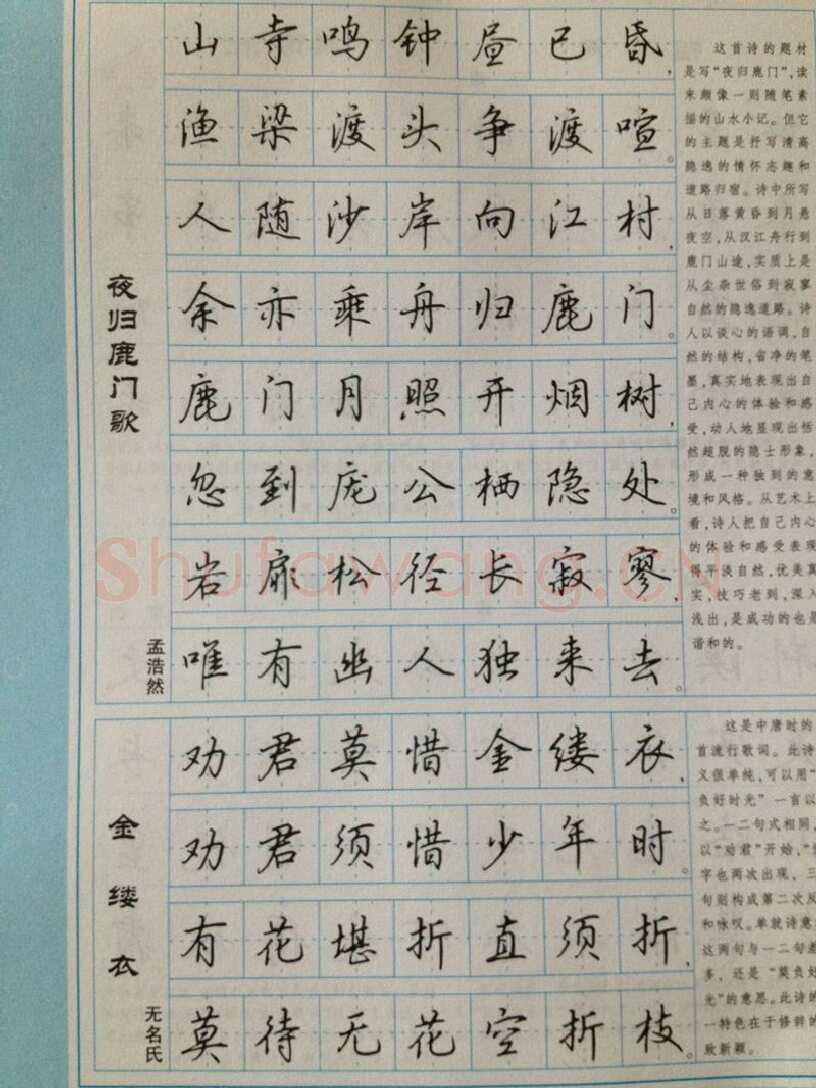 夜归鹿门歌
孟浩然
山寺鸣钟昼已昏，
渔梁渡头争渡喧。
人随沙岸向江村，
余亦乘舟归鹿门。
鹿门月照开烟树，
忽到庞公栖隐处。
岩扉松径长寂寥，
唯有幽人独来去。
这首诗的题材
是写“夜归鹿门”，读
来颇像一则随笔素
描的山水小记。但它
的主题是抒写清高
隐逸的情怀志趣和
道路归宿。诗中所写
从日落黄昏到月悬
夜空，从汉江舟行到
鹿门山途，实质上是
从尘杂世俗到寂寥
自然的隐逸道路。诗
人以谈心的语调，自
然的结构，省净的笔
墨，真实地表现出自
己内心的体验和感
受，动人地显现出恬
然超脱的隐士形象，
形成一种独到的意
境和风格。从艺术上
看，诗人把自己内心
的体验和感受表现
得平淡自然，优美真
实，技巧老到，深入
浅出，是成功的也是
谐和的。
金缕衣
无名氏
劝君莫惜金缕衣，
劝君须惜少年时。
有花堪折直须折，
莫待无花空折枝。
这是中唐时的
首流行歌词。此诗
义很单纯，可以用“
负好时光”一言以
之。一二句式相同，
以“劝君”开始，“
字也两次出现，三
句则构成第二次反
和咏叹。单就诗意
这两句与一二句差
多，还是“莫负好
光”的意思。此诗的
一特色在于修辞的
致新颖。
Shufawang.cn